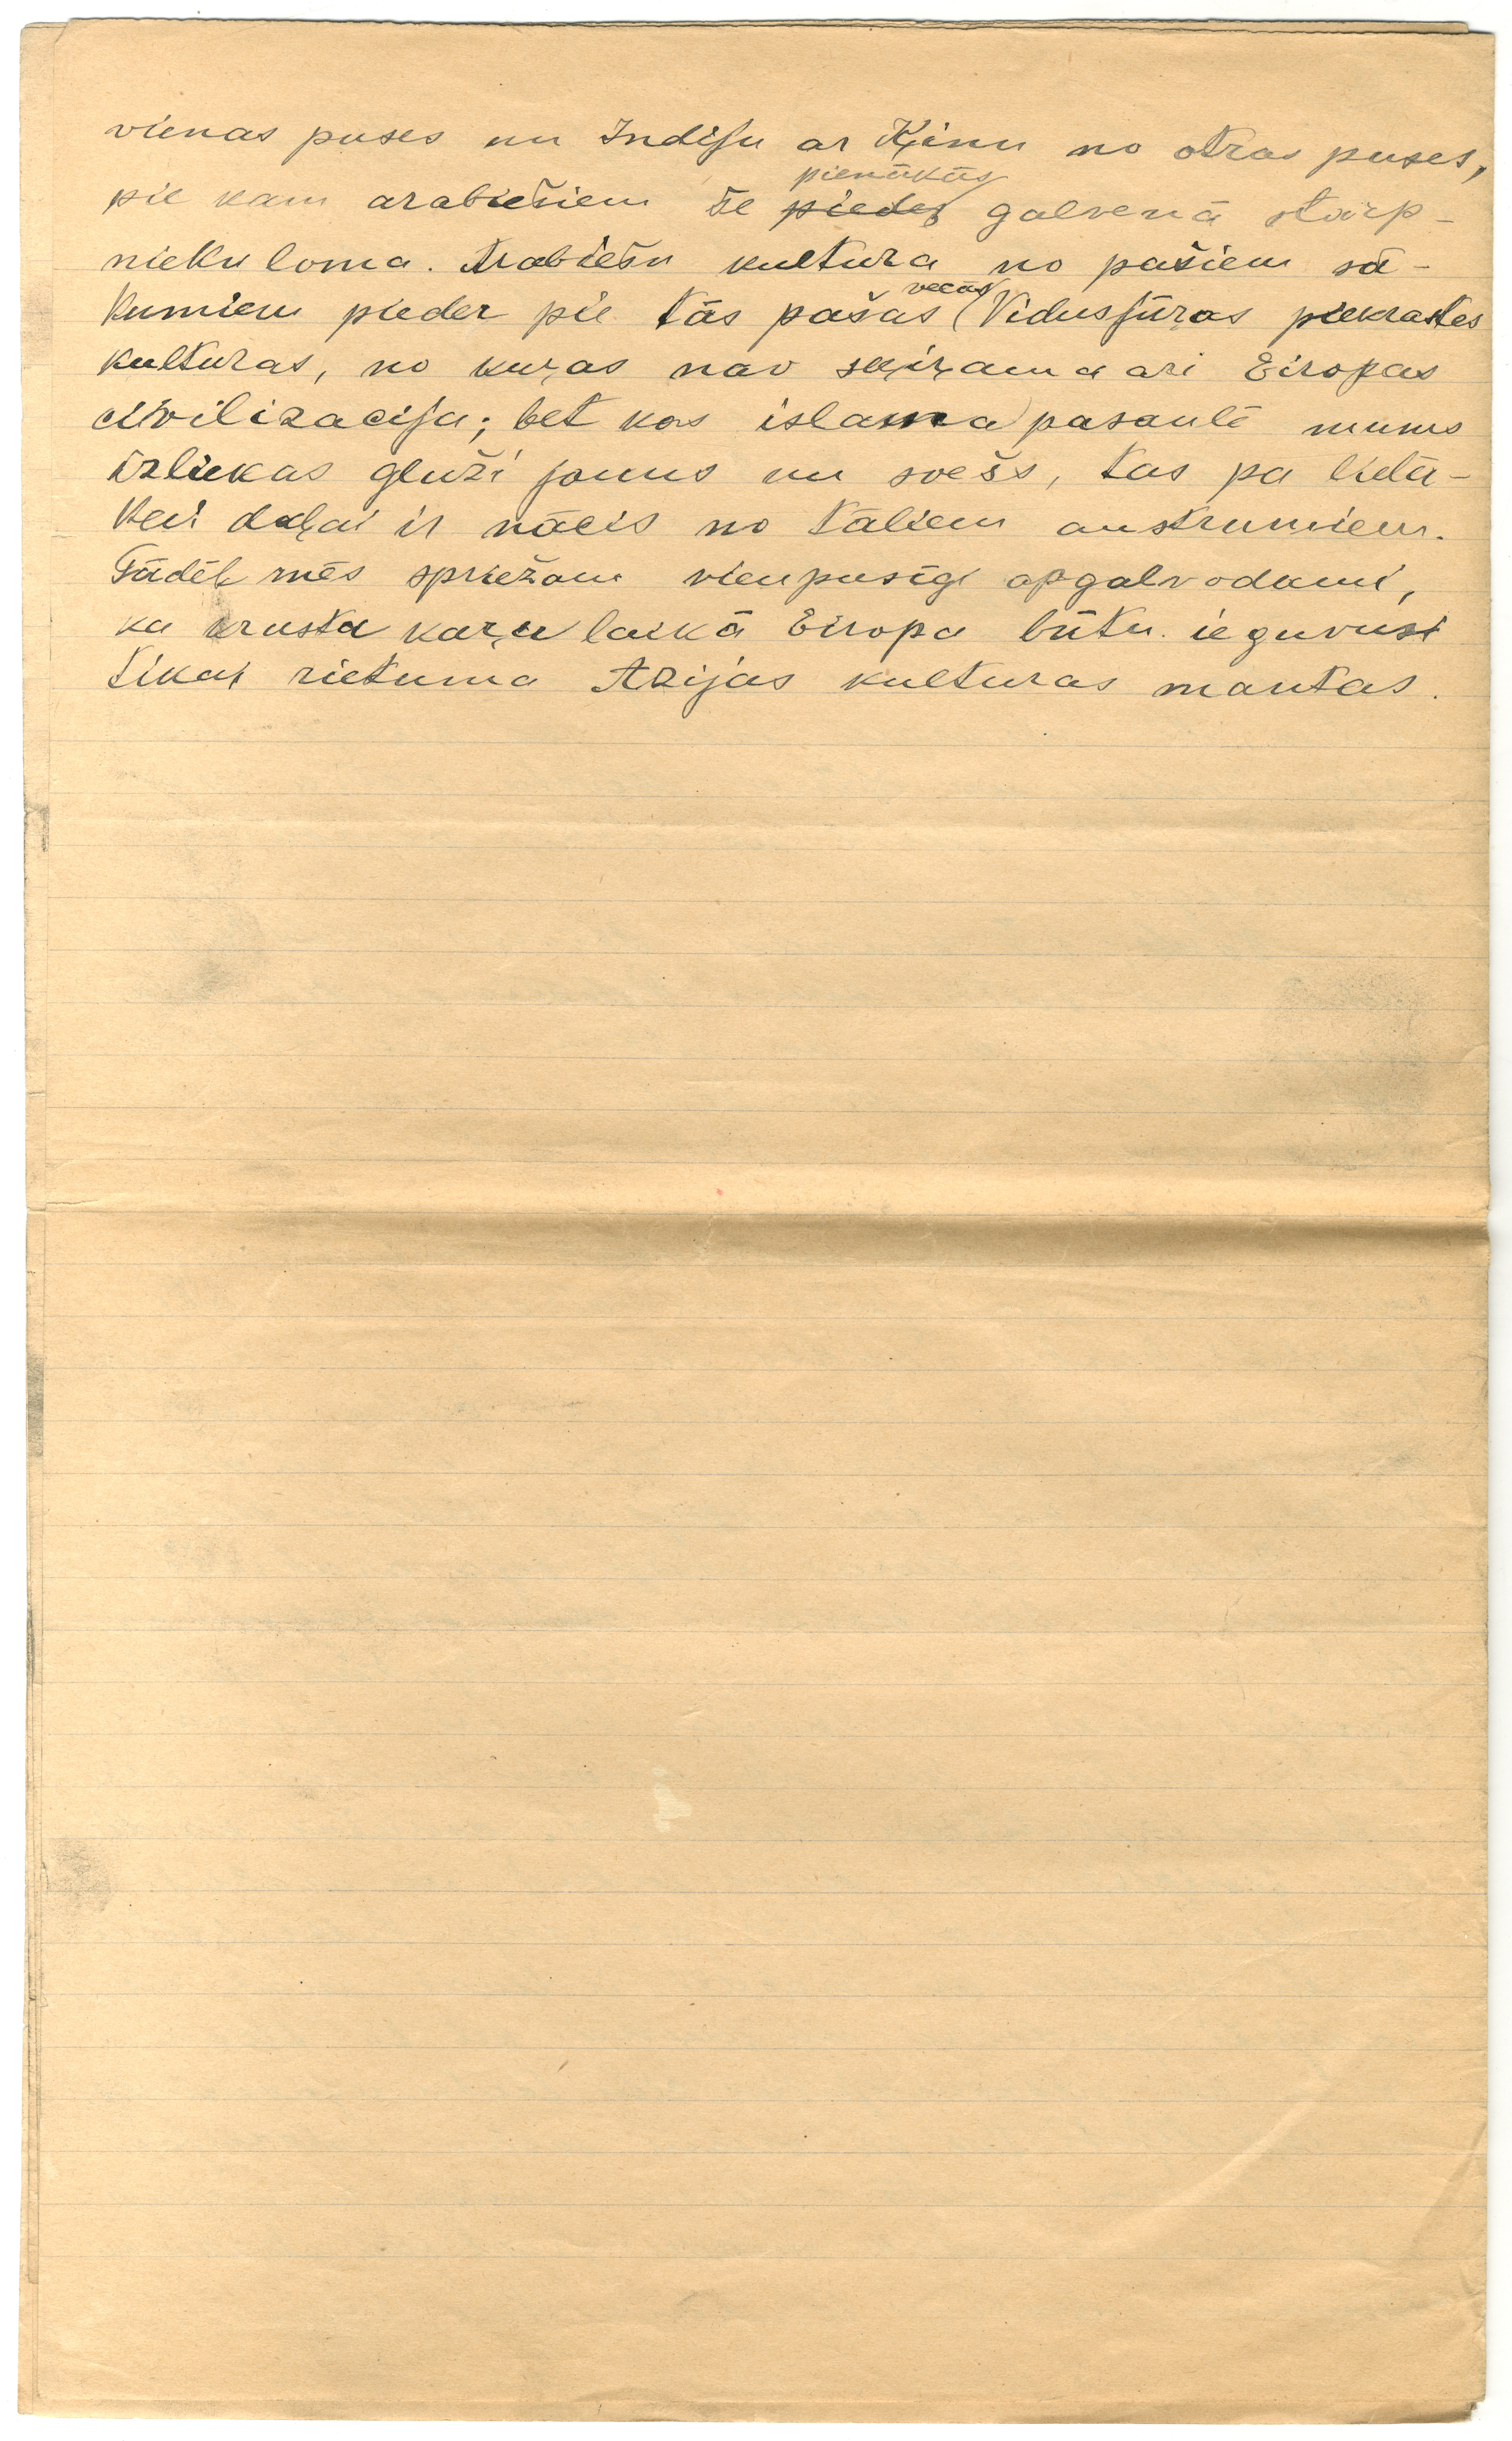 vienas puses un Indiju ar Ķinu no otras puses,
pienākās
pie kam arabiešiem še pieder galvenā starp-
nieku loma. Arabiešu kultura no pašiem sā-
vecās
kumiem pieder pie tās pašas Vidusjūras piekrastes
kulturas, no kuŗas nav šķiŗama ari Eiropas
civilizacija; bet kas islama pasaulē mums
izliekas gluži jauns un svešs, tas pa lielā-
kai daļai ir nācis no tāliem austrumiem.
Tādēļ mēs spriežam vienpusīgi apgalvodami,
ka krusta kaŗu laikā Eiropa būtu ieguvusi
tikai rietuma Azijas kulturas mantas.